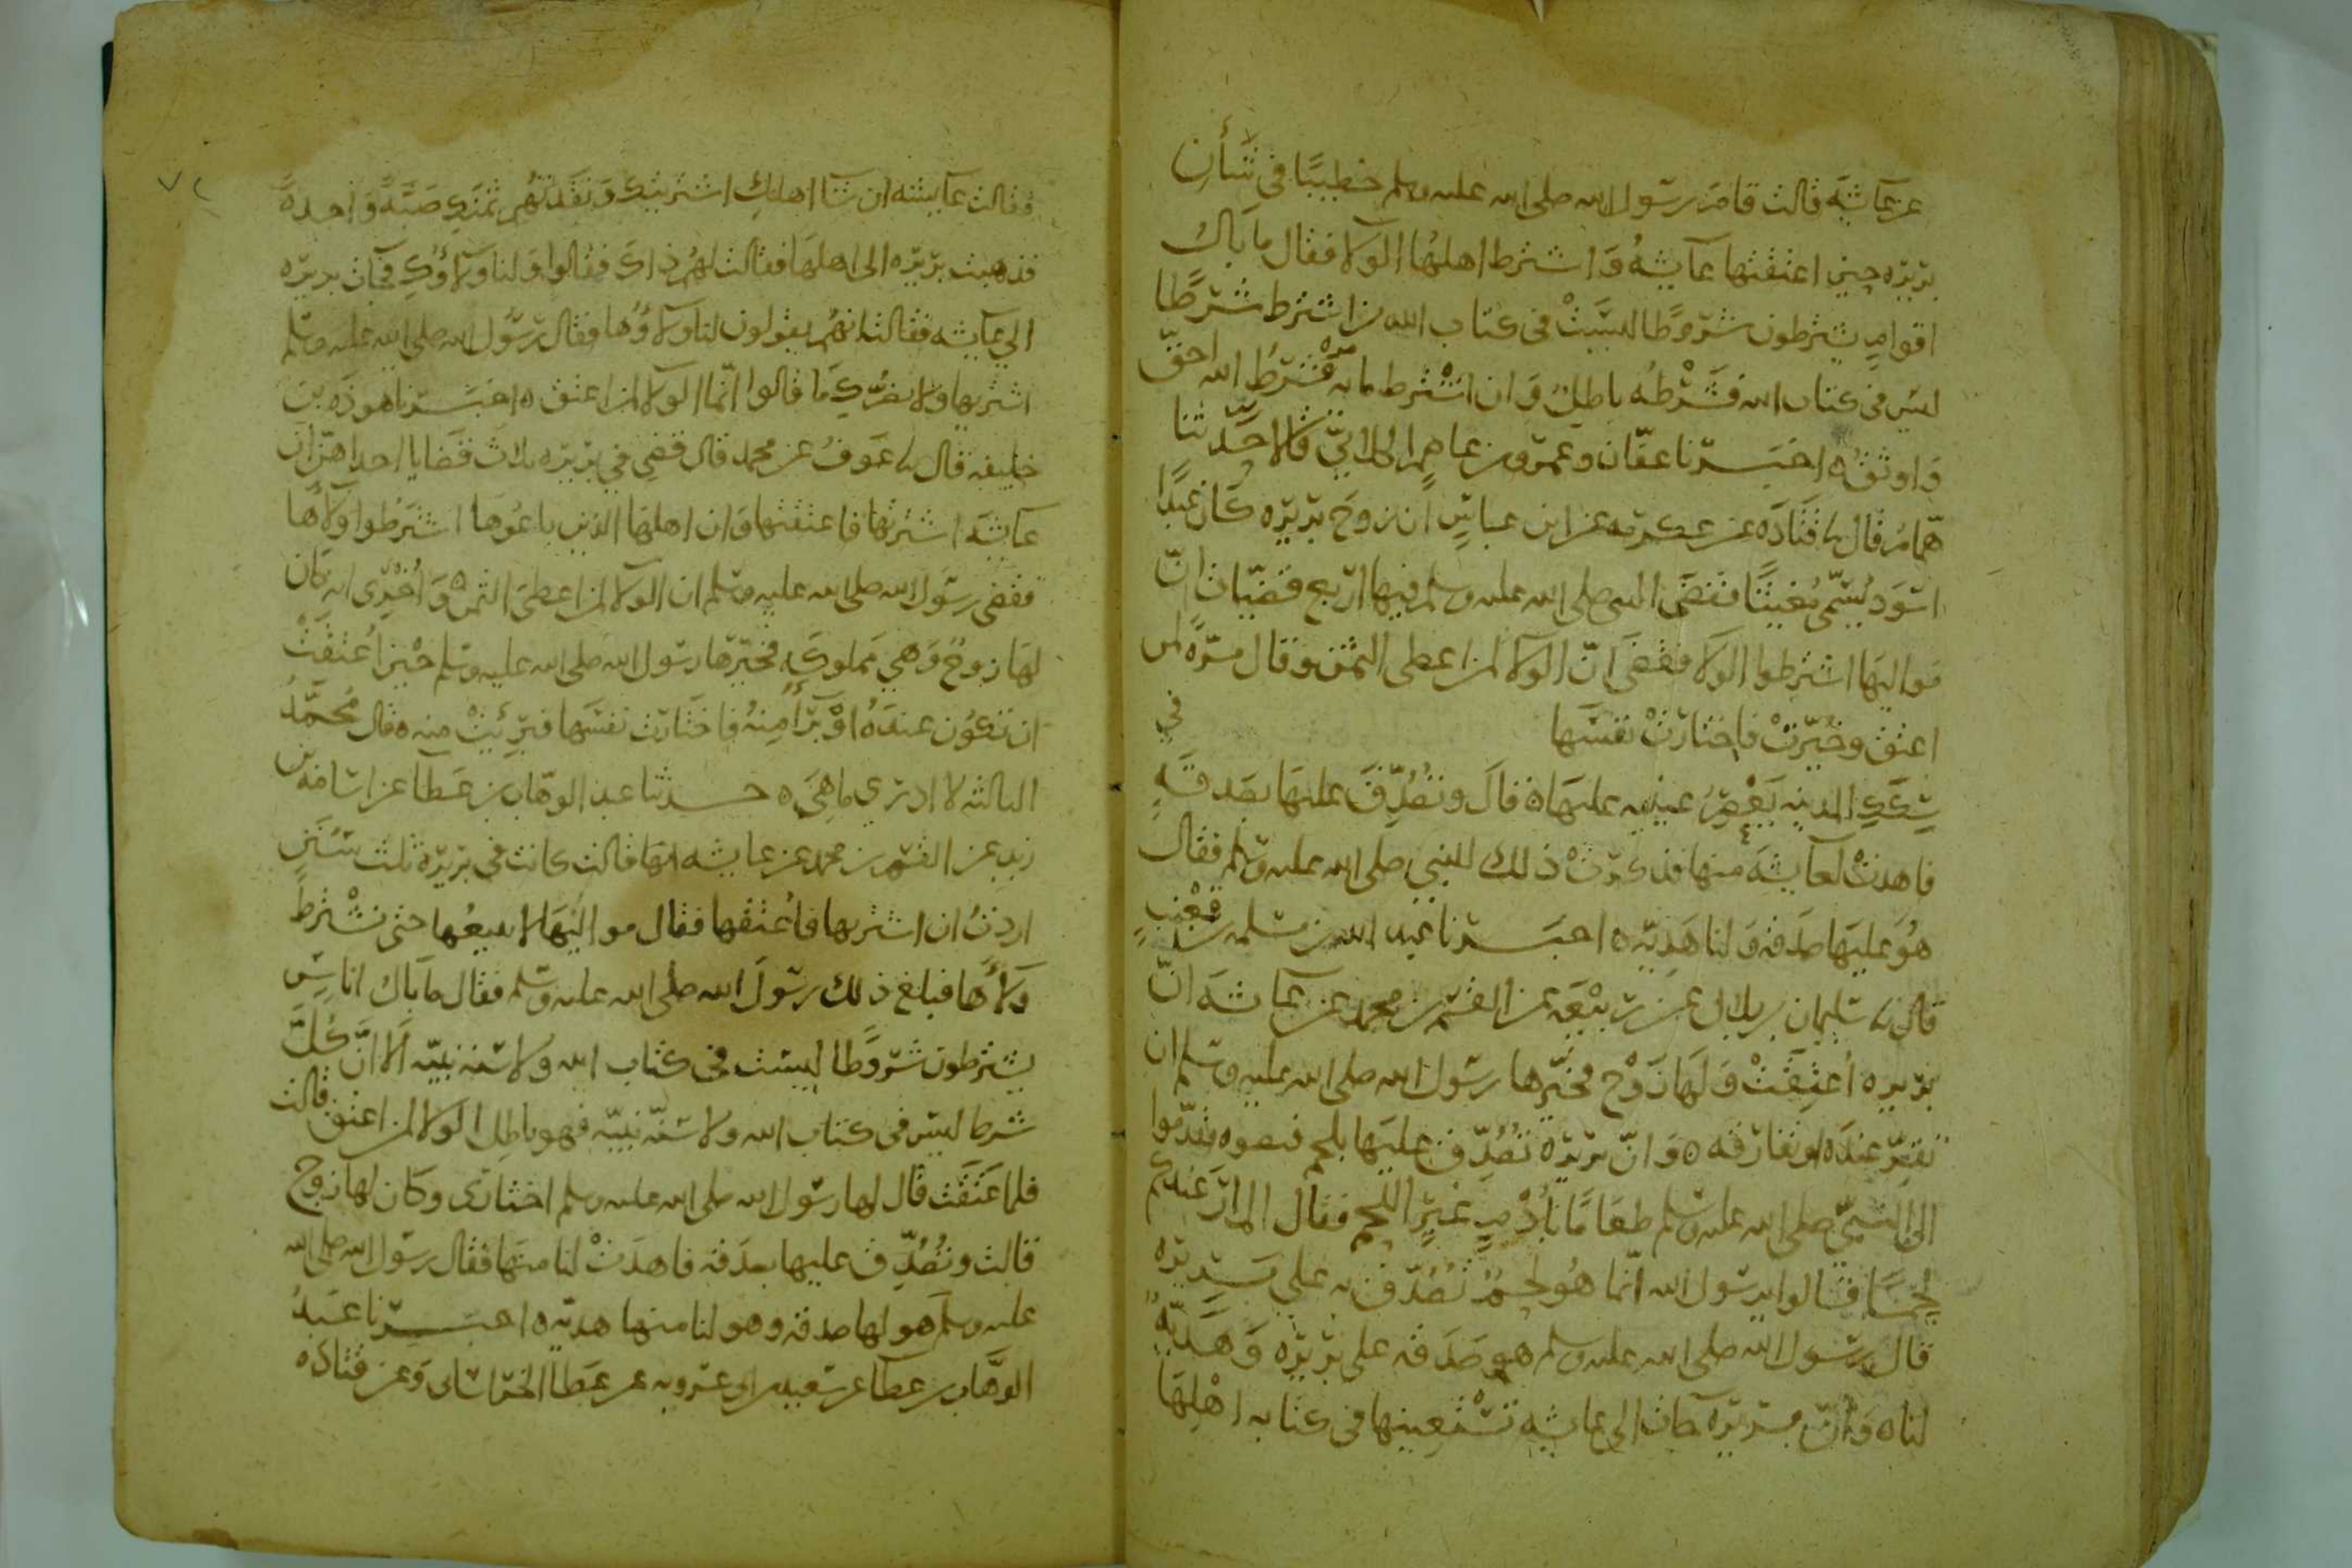 عن عائشة قالت قام رسول الله صلى الله عليه وسلم خطيبًا في شأن
بريره حين اعتقتها عايشةُ وَاشترط اهلهَا الولا فقال ما بال
اقوامٍ يشترطون شروطًا ليسَتْ في كتاب الله من اشترط شرطًا
ليس في كتاب الله فَشَرْطُه باطِلٌ وَان اشترط مايه مرّه فشَرْطُ الله احقّ
وَاوثقُ ه اخبَــرنا عفّان وعمرو بن عاصِم الكلابيّ قالا حَدّثنا
همّامُ قال نا قَتَادَه عن عكرمه عن ابن عباسٍ ان زوجَ بريره كان عبدًا
اسوَد يُسَمّى مُغيثًا فقضَى النبي صلى الله عليه وسلم فيها اربع قضيّات انّ
مَواليهَا اشترطوا الولا فقضَى انّ الولا لمن اعطى الثمن وقال مرّه لمن
اعتق وخُيّرتْ فاختارَتْ نفسَها في
سِكَكِ المدينه يَعْصِرُ عينيه عليهَا ه قالَ وتُصُدِّقَ عليهَا بصَدقَهٍ
فاهدتْ لعايشَه منها فذكرَتْ ذلك للنبي صلى الله عليه وسلم فقال
هُوَ عليهَا صَدقه وَلنا هَدِيّه ه اخبَــرنا عبد الله بن مسلمه بن قعْنبٍ
قال نا سليمان بن بلال عن ربيْعَه عن القسم بن محمد عن عائشه انّ
بريره اُعتِقَتْ وَلهَا زَوْج فخيّرها رسول الله صلى الله عليه وسلم ان
تقرّ عندَه او تفارقه ه وَانّ بريرَة تُصُدِّقَ عليهَا بلحم فنصبوه فقدّموا
الى النبيّ صلى الله عليه وسلم طعَامًا بأُدْمٍ غيرِ اللحم فقال الم ارَ عندكم
لحمًا فقالوا يرسول الله انّما هُو لحمٌ تُصُدّقَ به على بَرِيره
قال رسول الله صلى الله عليه وسلم هو صَدَقه على بريره وَهَدِيّةٌ
لنا ه وَانّ بريره جات الى عايشه تَسْتعِينها في كتابه اهْلِهَا
فقالت عايشه ان شا اهلكِ اشتريتكِ وَنقدتهُم ثمنكِ صَبّةً وَاحدةً
فذهبت بريره الى اهلهَا فقالت لهُم ذاكَ فقالوا وَلنا ولاؤكِ فجات بريره
الى عايشه فقالت انهُم يقولون لنا ولاؤُها فقال رسُول الله صلى الله عليه وسلم
اشتريها ولا يضُرّكِ مَا قالوا انّما الولا لمن اعتق ه اخبَــرنا هوذَه بن
خليفه قال نا عَوفُ عن محمد قال قضِي في بريره ثلاث قضَايا احداهنّ ان
عايشَه اشترتها فاعتقتها وَان اهلهَا الذين باعُوهَا اشترَطُوا ولاهَا
فقضى رسُول الله صلى الله عليه وسلم ان الولا لمن اعطى الثمن ه وَاُخْرى انه كان
لهَا زوجٌ وَهي مملوكَه فخيّرها رسُول الله صلى الله عليه وسلم حين اُعتقَتْ
ان تكوُن عندَهُ اوْ تَبرَأ مِنهُ فاختَارَت نفسَها فبَرِئَتْ منه ه قال مُحمَّدُ
الثالثه لا ادري ما هيَ ه حــدثنا عبد الوهّاب بن عَطَا عن اسَامه بن
زيد عن القسم بن محمد عن عايشه انهَا قالت كانت في بريرَة ثلث سُنَنٍ
اردتُ ان اشتريها فاُعتقها فقال مواليهَا لا نبيعُها حتى نشْترط
وَلاهَا فبلغ ذلك رسُولَ الله صلى الله عليه وسلم فقال ما بال اناسٍ
يشترطون شروطا ليسَت في كتاب الله وَلا سُنة نبيّه اَلا انّ كلّ
شرط ليس في كتاب الله ولا سُنّه نبيّه فهو باطِل الولا لمن اعتق قالت
فلما عَتَقَت قال لها رسُول الله صلى الله عليه وسلم اختارى وكان لها زوج
قالت وتُصُدّق عليها بصدَقه فاهدَتْ لنا منهَا فقال رسُول الله صلى الله
عليه وسلم هو لها صدقه وهو لنا منها هديّه ه اخبَــرنا عبدُ
الوهَّاب بن عطا عن سعيد بن ابى عروبه عن عَطا الخرَاسانى وَعن قتاده